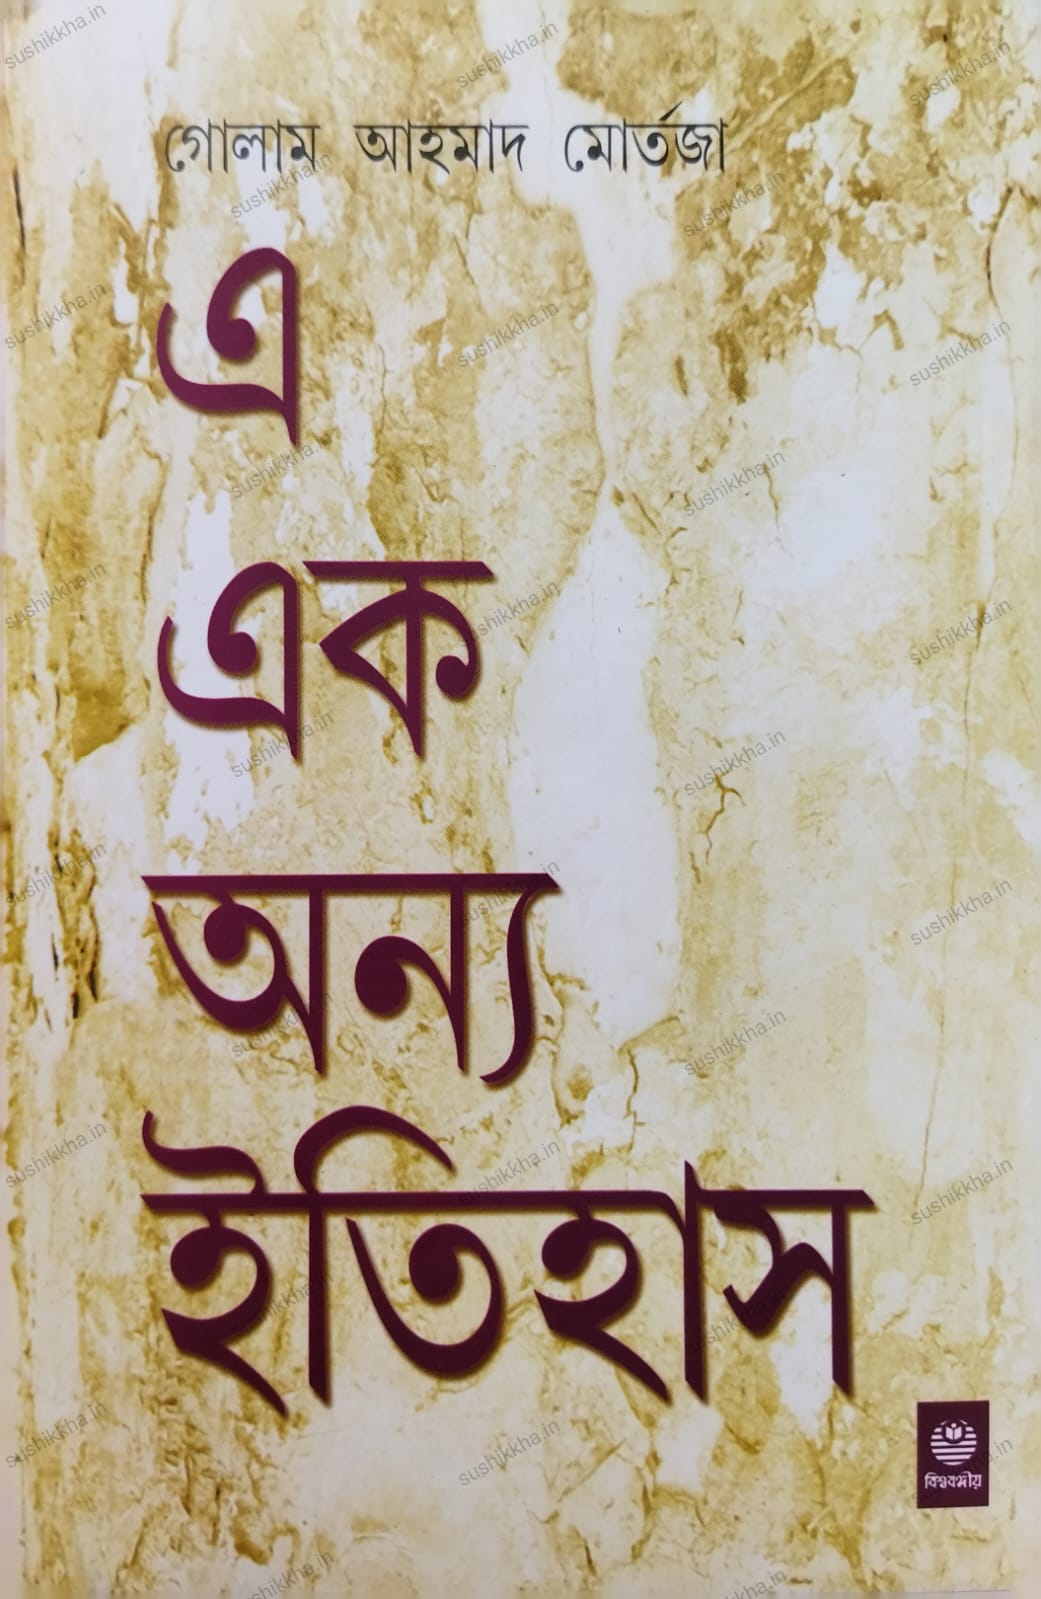 গোলাম আহমাদ মোর্তজা
এ
এক
অন্য
ইতিহাস
বিশ্ববঙ্গীয়
sushikkha.in